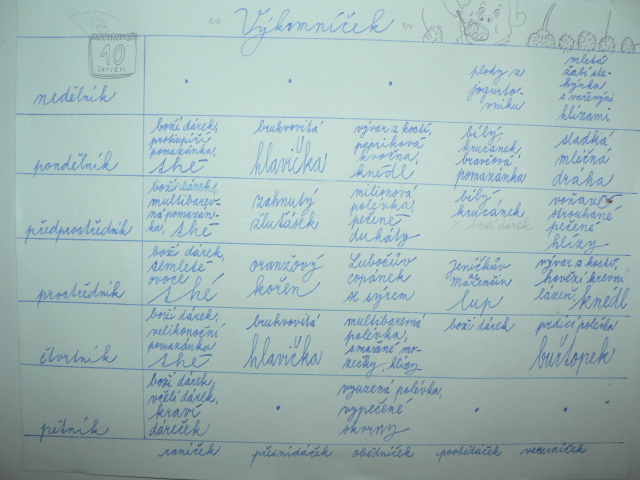 Výkomníček
10
červen
nedělník
plody z
jogurto-
vníku
mletá
žabí ste-
hýnka
s vařenými
hlízami
pondělník
boží dárek,
protiupíří
pomazánka,
thé
brukvovitá
hlavička
vývar z kostí,
papriková
kvočna,
knedl
bílý
kručánek,
bravčová
pomazánka
sladká
mléčná
dráha
předprostředník
boží dárek,
multibarev-
ná pomazán-
ka, thé
zahnutý
žluťásek
milionová
polévka,
pečené
dukáty
bílý
kručánek,
boží dárek
voňavé
strouhané
pečené
hlízy
prostředník
boží dárek,
semleté
ovoce
thé
oranžový
kořen
Lubočův
copánek
se sýrem
Jeníčkův
mařenčin
lup
vývar z kostí,
hovězí krevní
lázeň, knedl
čtvrtník
boží dárek,
velikonoční
pomazánka
thé
brukvovitá
hlavička
multibarevná
polévka,
smažené mo-
zečky, hlízy
boží dárek
prdící polévka
buřtopek
pětník
boží dárek,
včelí dárek,
kraví
dáreček
vyuzená polévka,
vypečené
skvrny
raníček
přesnídáček
obědníček
poobědáček
večerníček